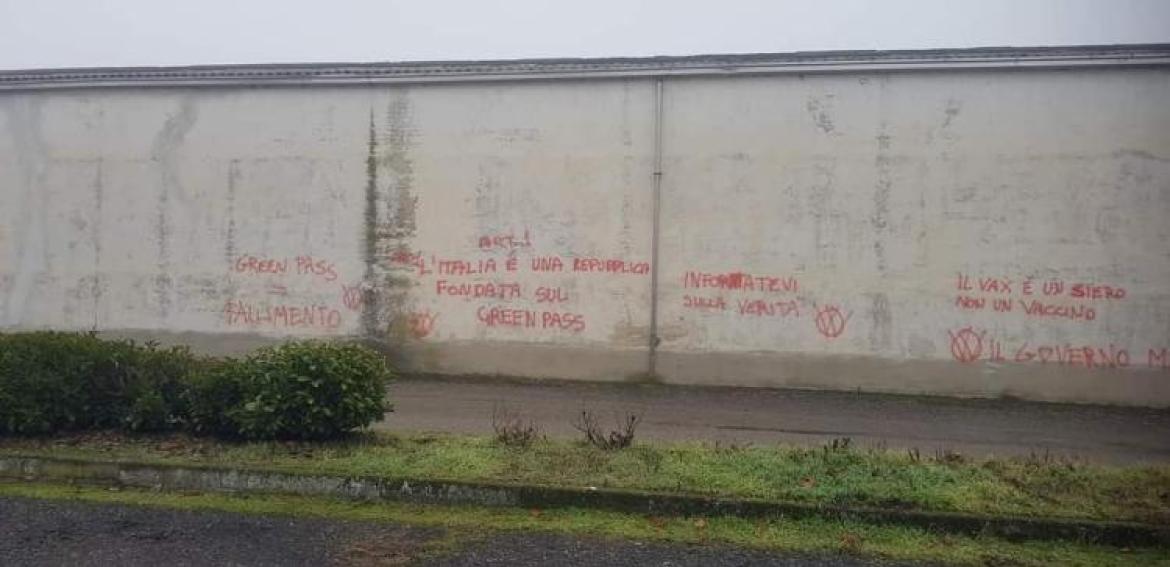 GREEN PASS
=
FALLIMENTO
ART.1
L'ITALIA É UNA REPUBBLICA
FONDATA SUL
GREEN PASS
INFORMATEVI
SULLA VERITÀ
IL VAX É UN SIERO
NON UN VACCINO
IL GOVERNO